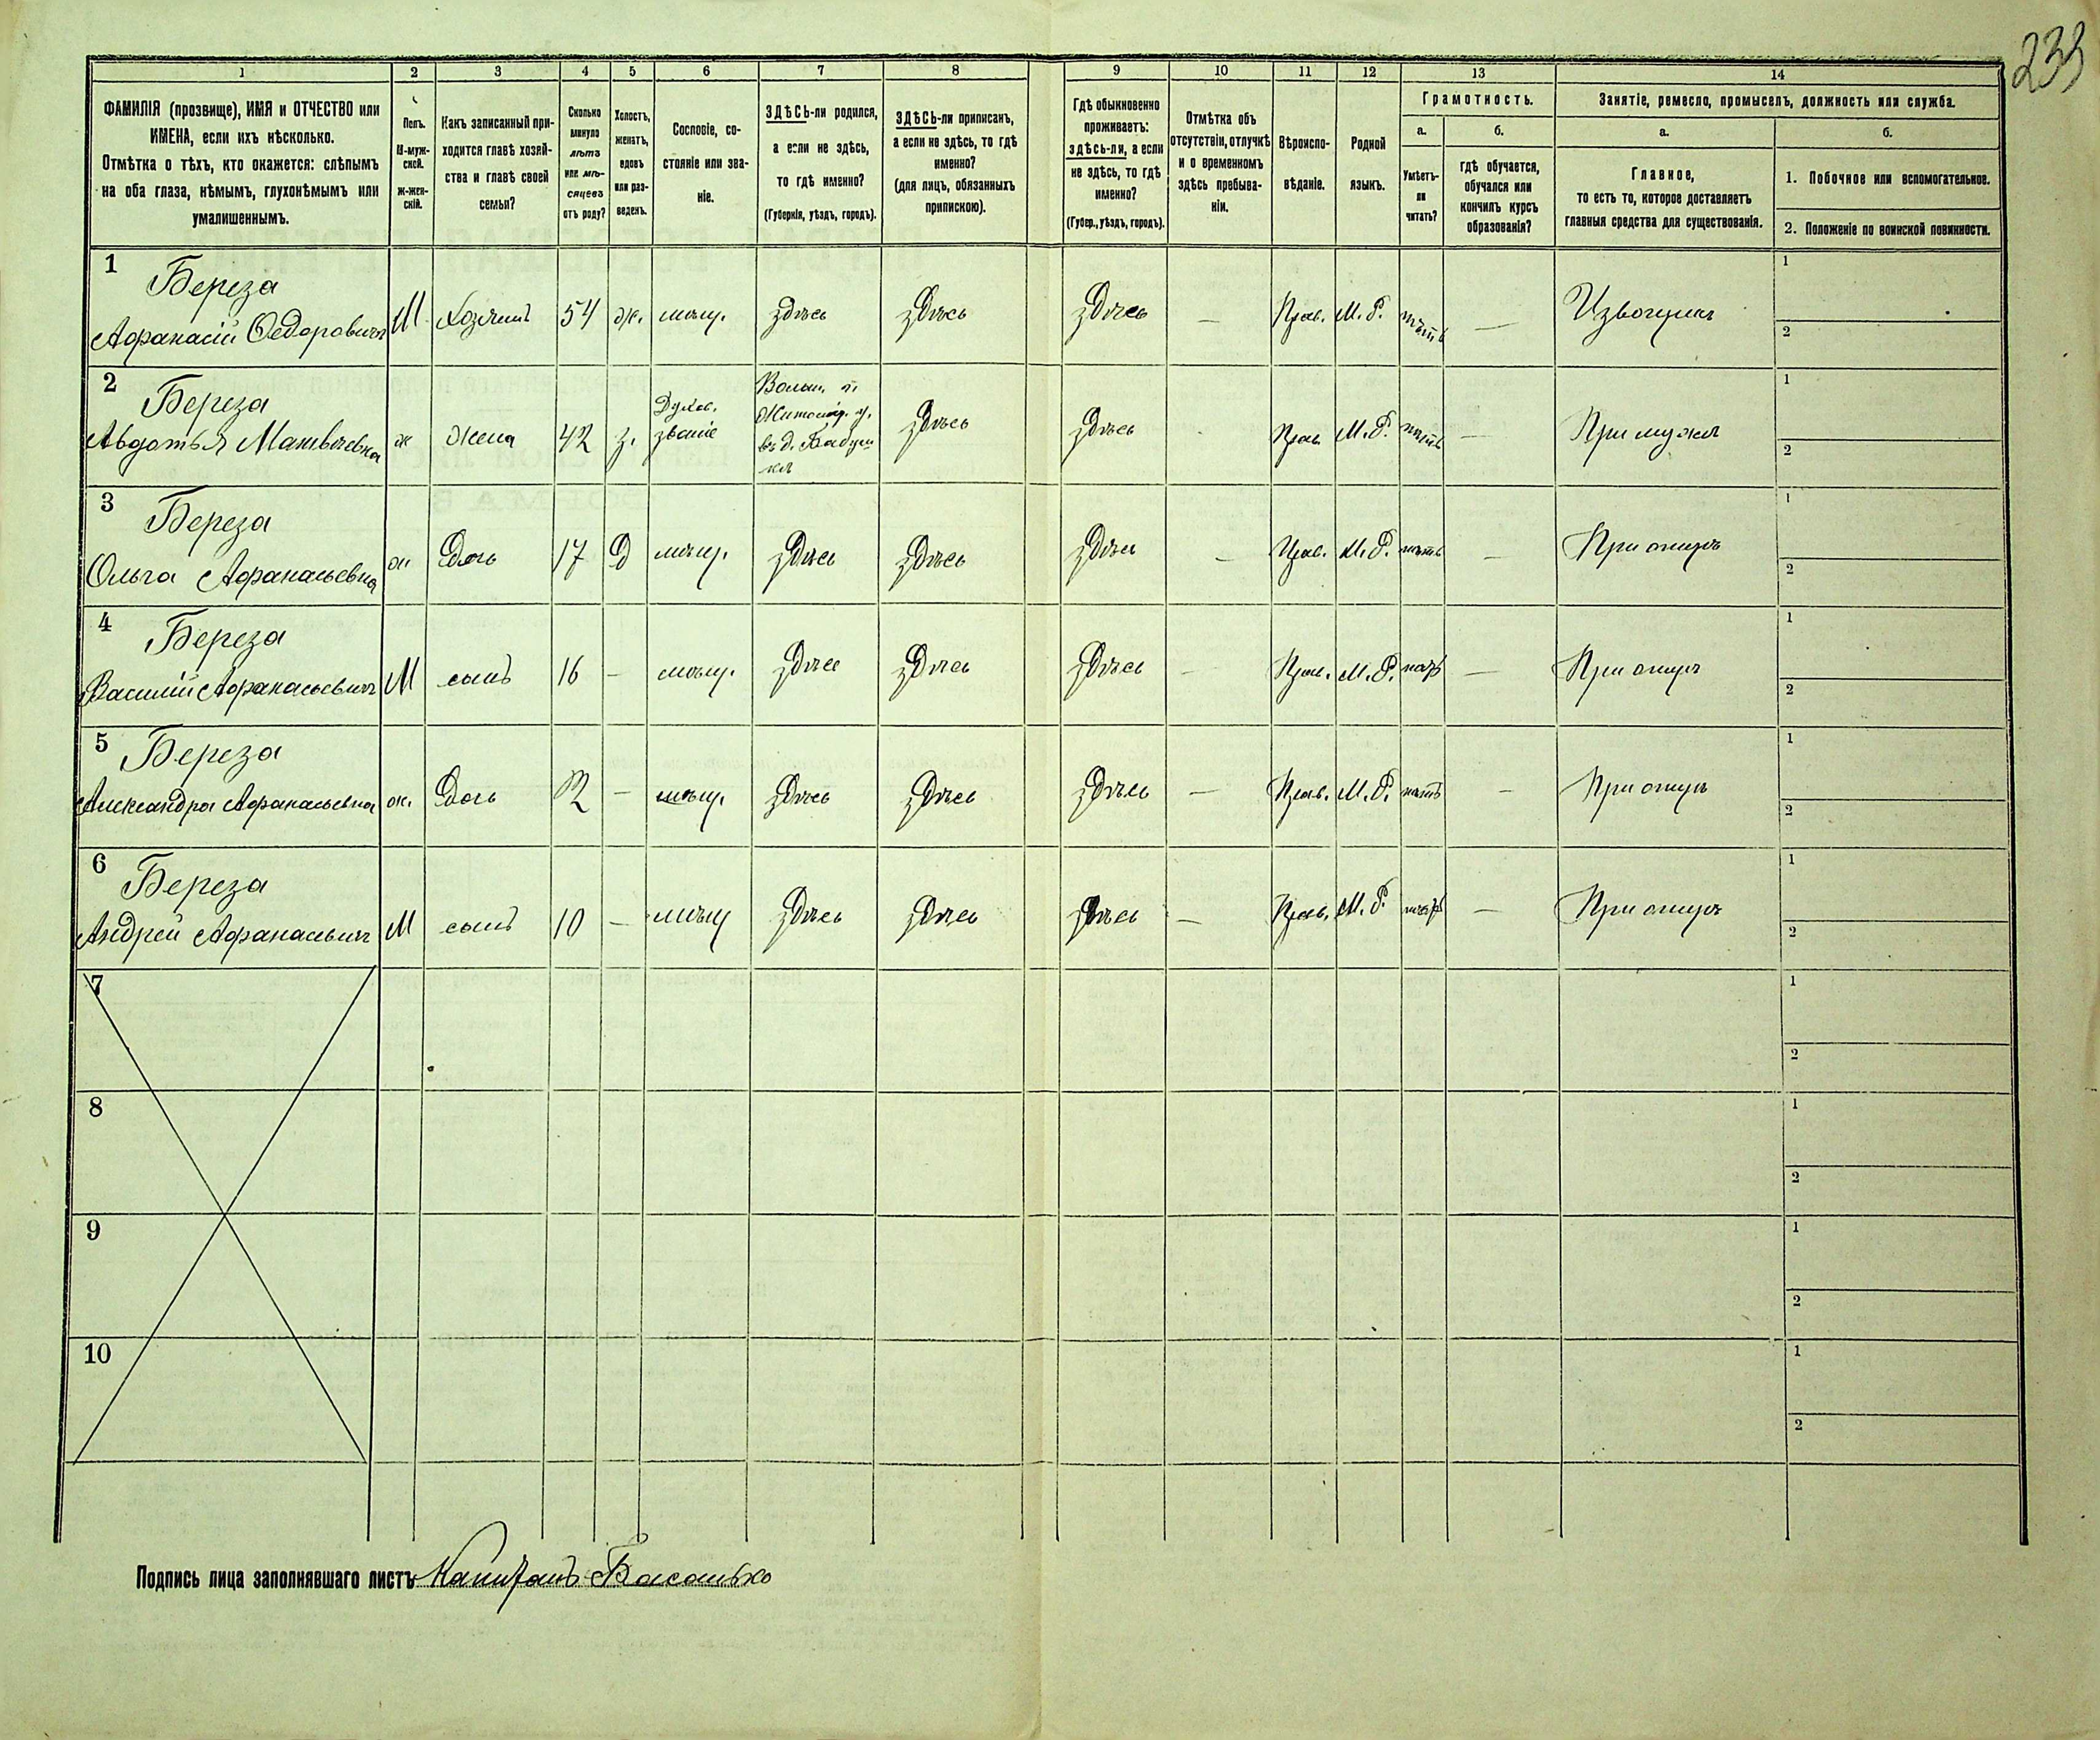 239
1 2 3 4 5 6 7 8 9 10 11 12 13 14
ФАМИЛІЯ (прозвище), ИМЯ и ОТЧЕСТВО или
ИМЕНА, если ихъ нѣсколько.
Отмѣтка о тѣхъ, кто окажется: слѣпымъ
на оба глаза, нѣмымъ, глухонѣмымъ или
умалишеннымъ.
Полъ.
М-муж-
ской.
Ж-жен-
скій.
Какъ записанный при-
ходится главѣ хозяй-
ства и главѣ своей
семьи?
Сколько
минуло
лѣтъ
или мѣ-
сяцевъ
отъ роду?
Холостъ,
женатъ,
вдовъ
или раз-
веденъ.
Сословіе, со-
стояніе или зва-
ніе.
ЗДѢСЬ-ли родился,
а если не здѣсь,
то гдѣ именно?
(Губернія, уѣздъ, городъ).
ЗДѢСЬ-ли приписанъ,
а если не здѣсь, то гдѣ
именно?
(для лицъ, обязанныхъ
припискою).
Гдѣ обыкновенно
проживаетъ:
здѣсь-ли, а если
не здѣсь, то гдѣ
именно?
(Губер., уѣздъ, городъ).
Отмѣтка объ
отсутствіи, отлучкѣ
и о временномъ
здѣсь пребыва-
ніи.
Вѣроиспо-
вѣданіе.
Родной
языкъ.
Грамотность.
а.
Умѣетъ-
ли
читать?
б.
гдѣ обучается,
обучался или
кончилъ курсъ
образованія?
Занятіе, ремесло, промыселъ, должность или служба.
а.
Главное,
то есть то, которое доставляетъ
главныя средства для существованія.
б.
1. Побочное или вспомогательное.
2. Положеніе по воинской повинности.
1 Береза
Афанасій Федоровичъ М Хозяинъ 54 ж. мѣщ. здѣсь здѣсь здѣсь — Прав. М. Р. нѣтъ — Извощикъ 1 2
2 Береза
Авдотья Матвѣевна ж жена 42 з. Духов. званіе Волын. г. Житомір. у. въ д. здѣсь здѣсь Прав. М. Р. нѣтъ — При мужѣ 1 2
3 Береза
Ольга Афанасьевна ж Дочь 17 Д мѣщ. здѣсь здѣсь здѣсь — Прав. М. Р. нѣтъ — При отцѣ 1 2
4 Береза
Василій Афанасьевичъ М сынъ 16 — мѣщ. здѣсь здѣсь здѣсь — Прав. М. Р. нѣтъ — При отцѣ 1 2
5 Береза
Александра Афанасьевна ж. Дочь — мѣщ. здѣсь здѣсь здѣсь — Прав. М. Р. нѣтъ — При отцѣ 1 2
6 Береза
Андрей Афанасьевичъ М сынъ 10 — мѣщ здѣсь здѣсь здѣсь — Прав. М. Р. нѣтъ — При отцѣ 1 2
7 1 2
8 1 2
9 1 2
10 1 2
Подпись лица заполнявшаго листъ Капитанъ